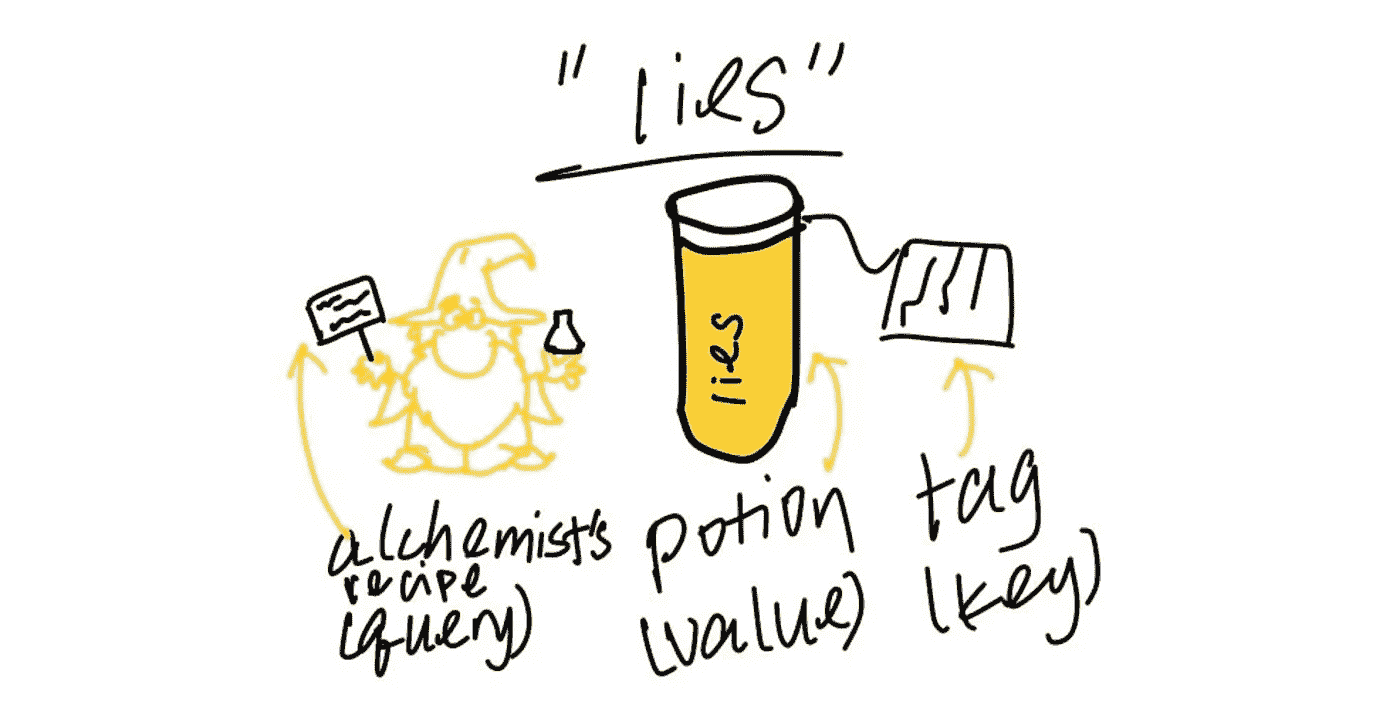 "lies"
lies
alchemist's
recipe
(query)
potion
(value)
tag
(key)